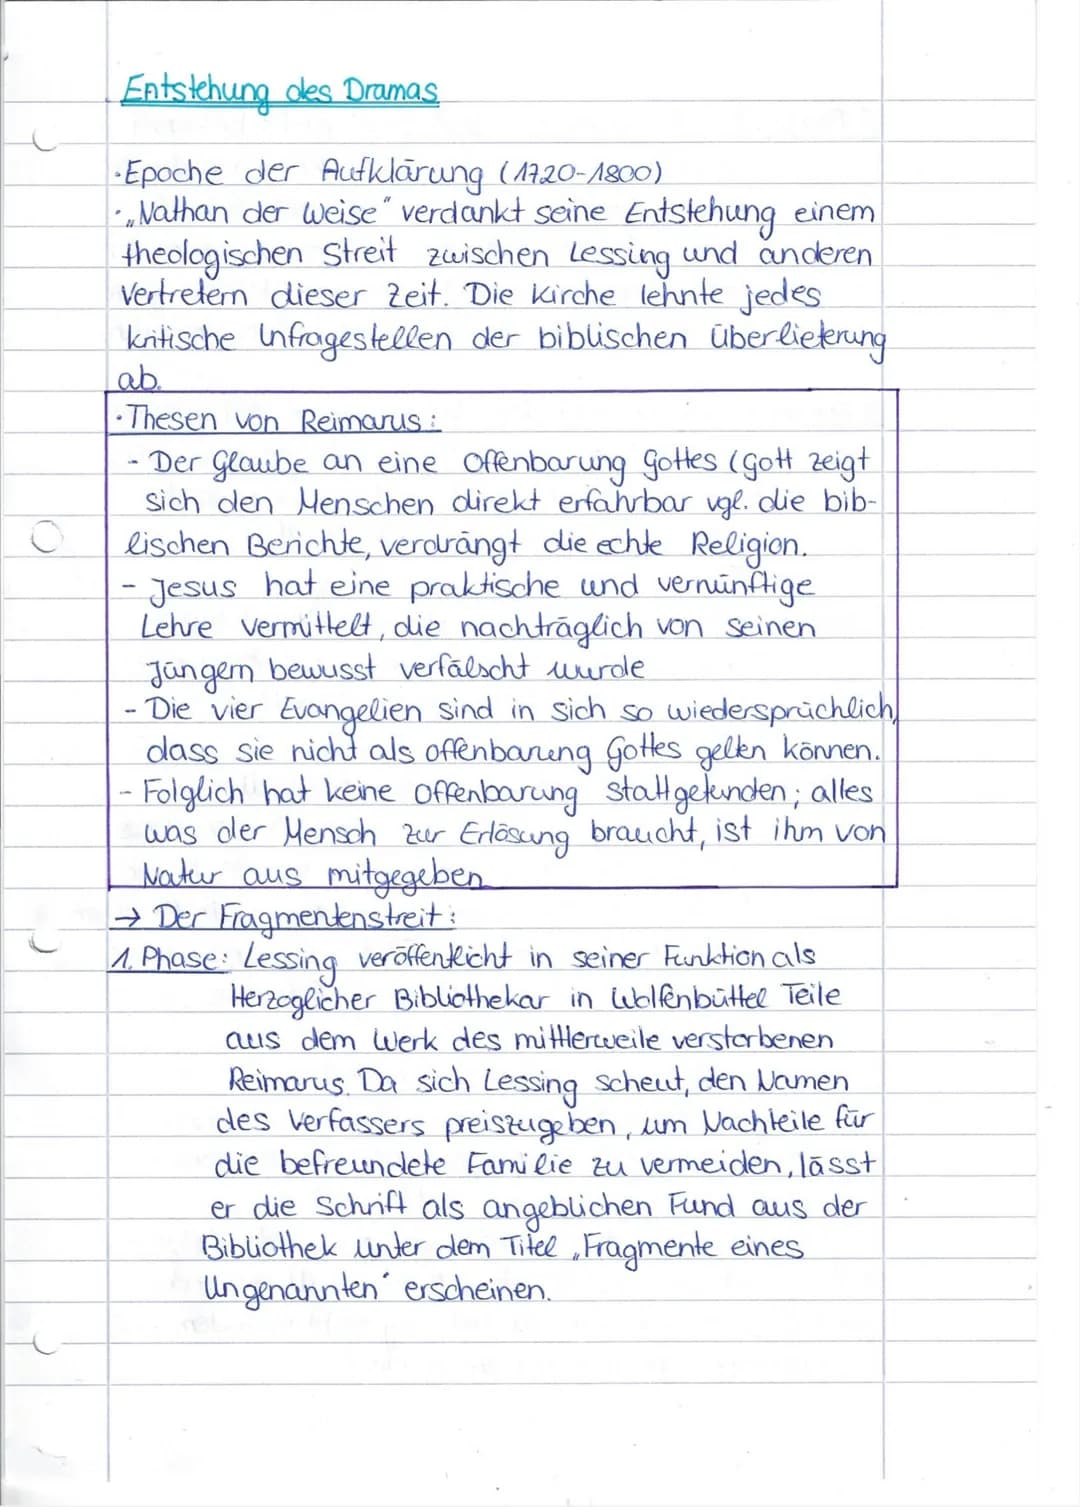 Entstehung des Dramas
·Epoche der Aufklärung (1720-1800)
·„Nathan der Weise" verdankt seine Entstehung einem
theologischen Streit zwischen Lessing und anderen
Vertretern dieser Zeit. Die Kirche lehnte jedes
kritische Infragestellen der biblischen Überlieferung
ab.
·Thesen von Reimarus:
- Der Glaube an eine Offenbarung Gottes (Gott zeigt
sich den Menschen direkt erfahrbar vgl. die bib-
lischen Berichte, verdrängt die echte Religion.
- Jesus hat eine praktische und vernünftige
Lehre vermittelt, die nachträglich von seinen
Jüngern bewusst verfälscht wurde
- Die vier Evangelien sind in sich so wiedersprüchlich,
dass sie nicht als offenbarung Gottes gelten können.
- Folglich hat keine Offenbarung stattgefunden; alles
was der Mensch zur Erlösung braucht, ist ihm von
Natur aus mitgegeben
→ Der Fragmentenstreit:
1. Phase: Lessing veröffentlicht in seiner Funktion als
Herzoglicher Bibliothekar in Wolfenbüttel Teile
aus dem Werk des mittlerweile verstorbenen
Reimarus. Da sich Lessing scheut, den Namen
des Verfassers preiszugeben, um Nachteile für
die befreundete Familie zu vermeiden, lässt
er die Schrift als angeblichen Fund aus der
Bibliothek unter dem Titel „Fragmente eines
Ungenannten" erscheinen.